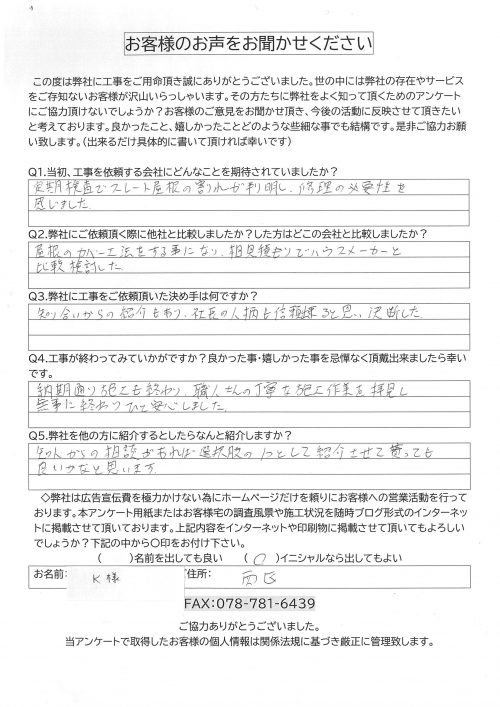 お客様のお声をお聞かせください
この度は弊社に工事をご用命頂き誠にありがとうございました。世の中には弊社の存在やサービス
をご存知ないお客様が沢山いらっしゃいます。その方たちに弊社をよく知って頂くためのアンケート
にご協力頂けないでしょうか？お客様のご意見をお聞かせ頂き、今後の活動に反映させて頂きたい
と考えております。良かったこと、嬉しかったことどのような些細な事でも結構です。是非ご協力お願
い致します。（出来るだけ具体的に書いて頂ければ幸いです）
Q1.当初、工事を依頼する会社にどんなことを期待されていましたか？
定期検査でスレート屋根の割れが判明し、修理の必要性を
感じました
Q2.弊社にご依頼頂く際に他社と比較しましたか？した方はどこの会社と比較しましたか？
屋根のカバー工法をする事になり、相見積もりでハウスメーカーと
比較検討した
Q3.弊社に工事をご依頼頂いた決め手は何ですか？
知り合いからの紹介もあり、社長の人柄も信頼出来ると思い決断した
Q4.工事が終わってみていかがですか？良かった事・嬉しかった事を忌憚なく頂戴出来ましたら幸い
です。
納期通り施工も終わり、職人さんの丁寧な施工作業を拝見し
無事に終わりひと安心しました。
Q5.弊社を他の方に紹介するとしたらなんと紹介しますか？
知人からの相談があれば選択肢の1つとして紹介させて貰っても
良いかなと思います。
◇弊社は広告宣伝費を極力かけない為にホームページだけを頼りにお客様への営業活動を行って
おります。本アンケート用紙またはお客様宅の調査風景や施工状況を随時ブログ形式のインターネッ
トに掲載させて頂いております。上記内容をインターネットや印刷物に掲載させて頂いてもよろしい
でしょうか？下記の中から〇印をお付け下さい。
（　　）名前を出しても良い　（〇）イニシャルなら出してもよい
お名前： K様 ご住所： 西区
FAX：078-781-6439
ご協力ありがとうございました。
当アンケートで取得したお客様の個人情報は関係法規に基づき厳正に管理致します。